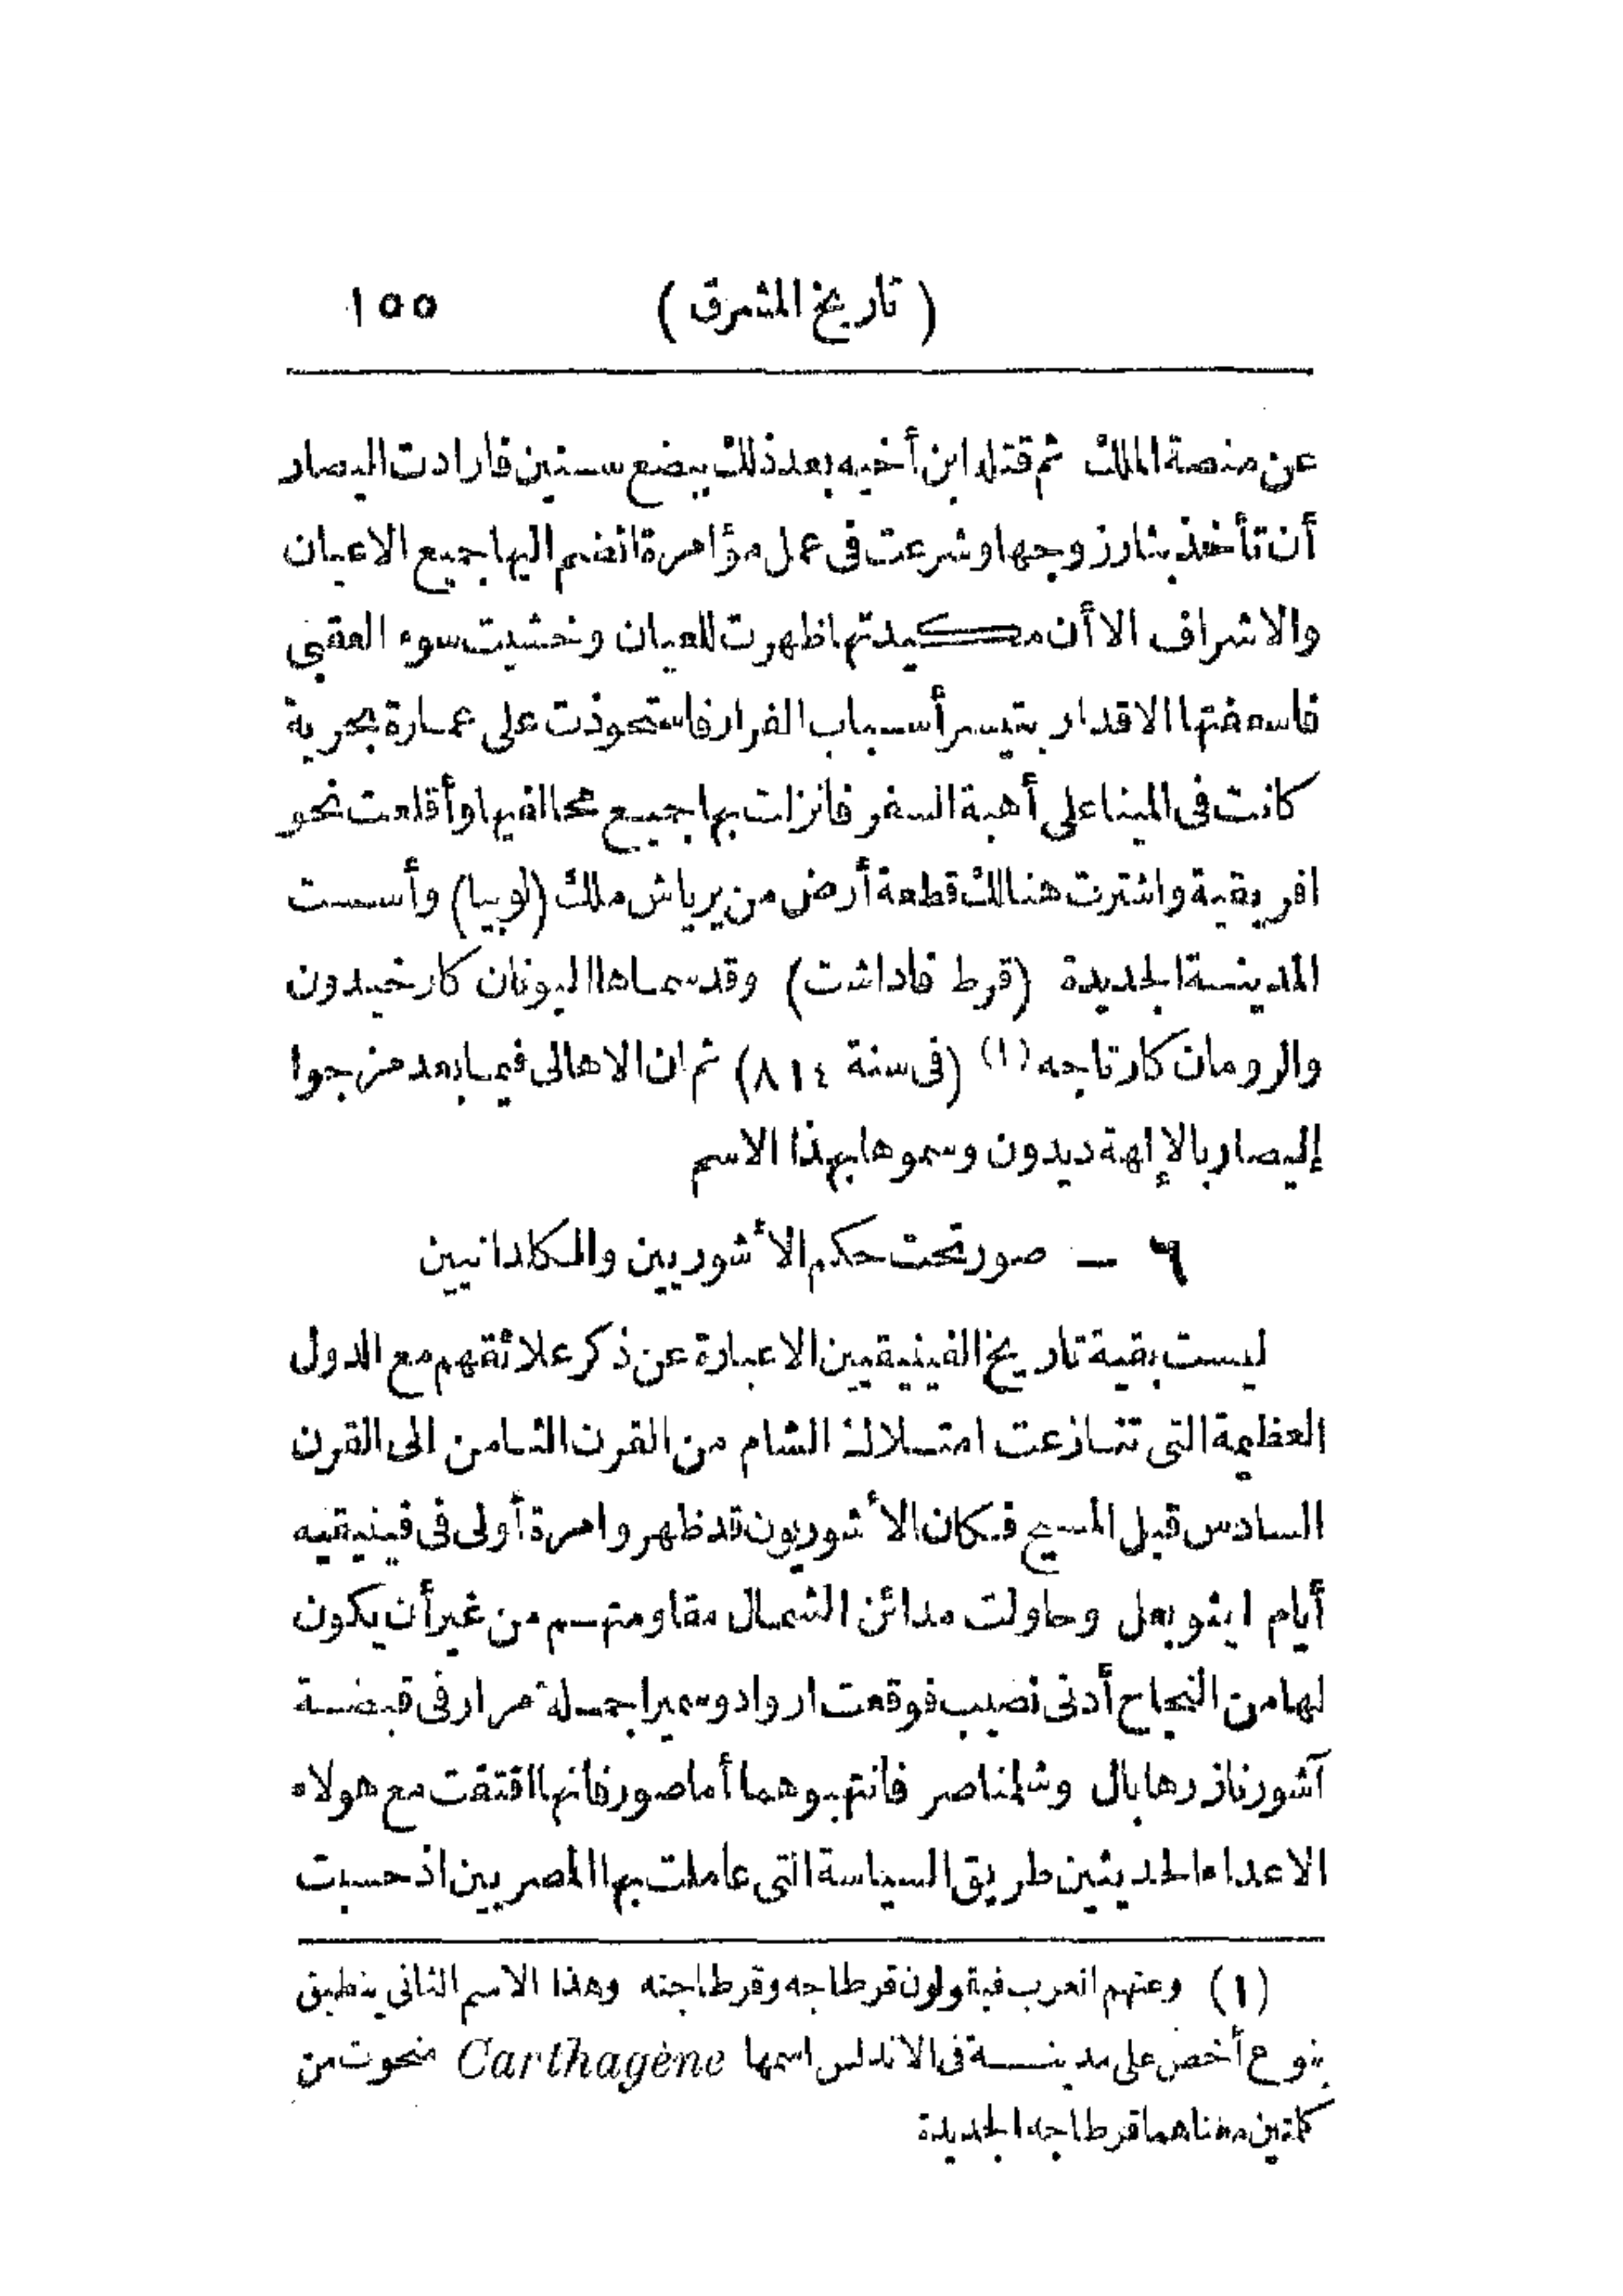 ( تاريخ المشرق ) ١٥٥
عن منصة الملك ثم قتله ابن أخيه بعد ذلك ببضع سنين فارادت اليصار
أن تأخذ بثار زوجها وشرعت فى عمل مؤامرة انضم اليها جميع الاعيان
والاشراف الا أن مكيدتها ظهرت للعيان وخشيت سوء العقبى
فاسعفتها الاقدار بتيسر أسباب الفرار فاستحوذت على عمارة بحرية
كانت فى المينا على أهبة السفر فانزلت بها جميع محالفيها وأقلعت نحو
افريقية واشترت هنالك قطعة أرض من يرياش ملك (لوبيا) وأسست
المدينة الجديدة (قرط قاداشت) وقد سماها اليونان كارخيدون
والرومان كارتاجه (١) (فى سنة ٨١٤) ثم ان الاهالى فيما بعد مزجوا
إليصار بالإلهة ديدون وسموها بهذا الاسم
٦ — صور تحت حكم الأشوريين والكلدانيين
ليست بقية تاريخ الفينيقيين الا عبارة عن ذكر علائقهم مع الدول
العظيمة التى تنازعت امتلاك الشام من القرن الثامن الى القرن
السادس قبل المسيح فكان الأشوريون قد ظهروا مرة أولى فى فينيقيه
أيام ايثوبعل وحاولت مدائن الشمال مقاومتهم من غير أن يكون
لها من النجاح أدنى نصيب فوقعت ارواد وسميرا جملة مرار فى قبضة
آشورنازرهابال وشلمناصر فانتهبوهما أما صور فانها اقتفت مع هولاء
الاعداء الحديثين طريق السياسة التى عاملت بها المصريين اذ حسبت
(١) وعنهم العرب فيقولون قرطاجه وقرطاجنه وهذا الاسم الثانى ينطبق
بنوع أخص على مدينة فى الاندلس اسمها Carthagène منحوت من
كلمتين معناهما قرطاجه الجديدة